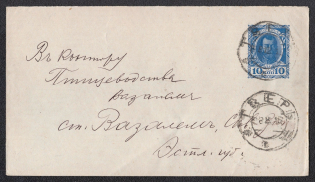 Въ контору
Птицеводства
Вазалемъ
ст. Вазалемъ,
Эстл. губ.
10 10
ТВЕРЬ
ТВЕРЬ